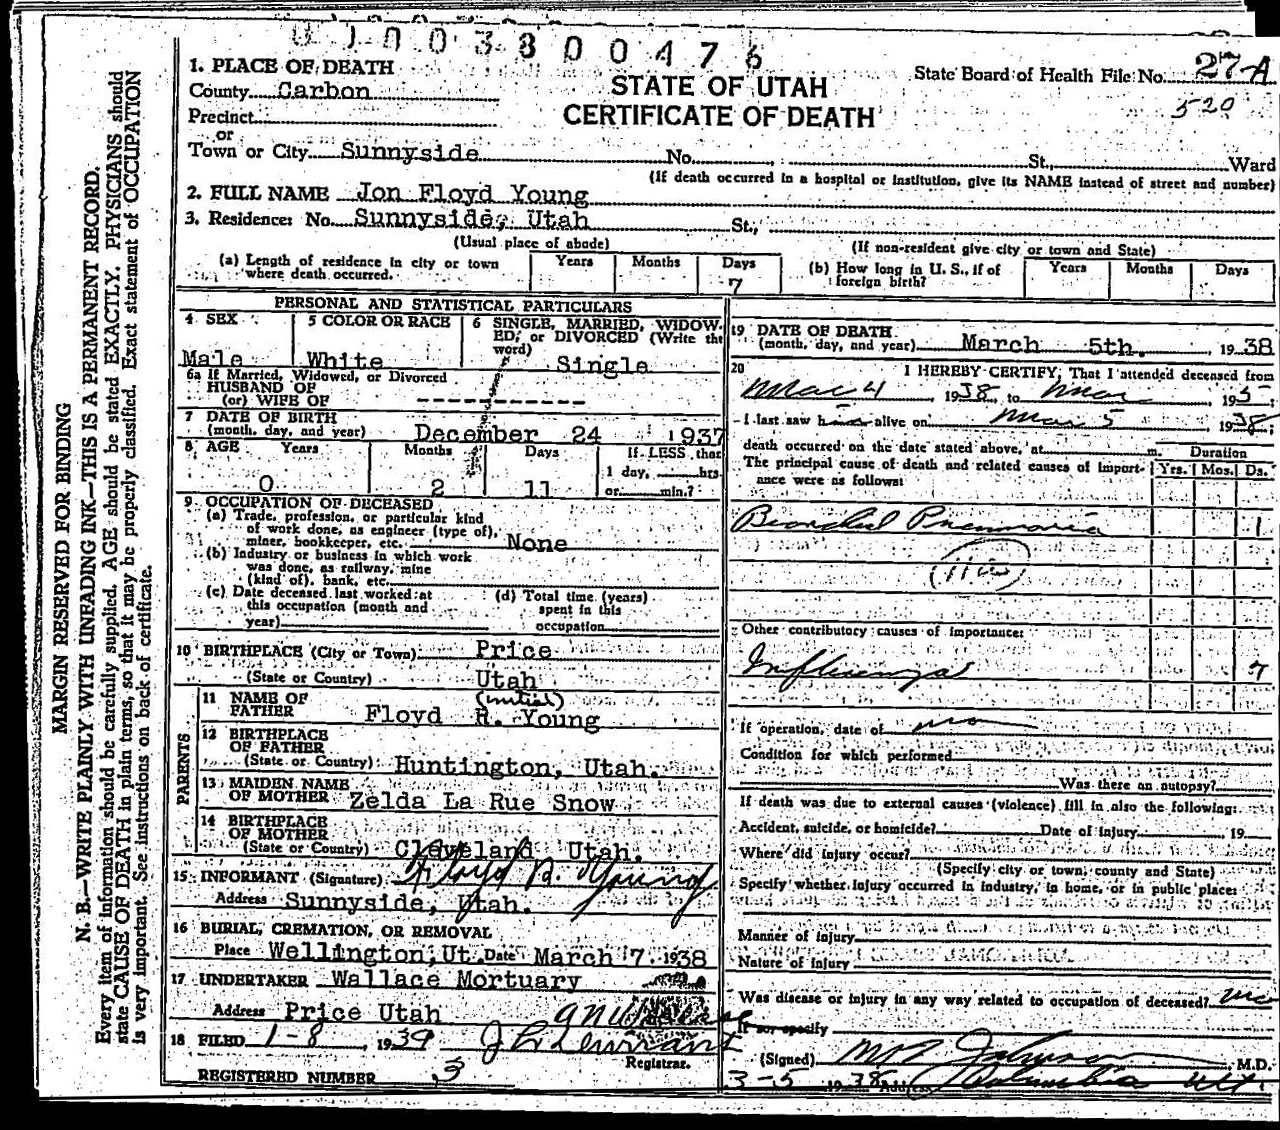 0 1 0 0 3 8 0 0 4 7 6
1. PLACE OF DEATH
County Carbon
Precinct
or
Town or City Sunnyside No. St., Ward
(If death occurred in a hospital or institution, give its NAME instead of street and number)
STATE OF UTAH
CERTIFICATE OF DEATH
State Board of Health File No. 27-A
520
2. FULL NAME Jon Floyd Young
3. Residence: No. Sunnyside, Utah St.,
(Usual place of abode) (If non-resident give city or town and State)
(a) Length of residence in city or town where death occurred. Years Months Days 7
(b) How long in U. S., if of foreign birth? Years Months Days
PERSONAL AND STATISTICAL PARTICULARS
4 SEX Male
5 COLOR OR RACE White
6 SINGLE, MARRIED, WIDOWED, or DIVORCED (Write the word) Single
6a If Married, Widowed, or Divorced
HUSBAND OF
(or) WIFE OF ------------
7 DATE OF BIRTH
(month, day, and year) December 24 1937
8 AGE Years 0 Months 2 Days 11 If LESS than 1 day, hrs. or min.?
9 OCCUPATION OF DECEASED
(a) Trade, profession, or particular kind
of work done, as engineer (type of),
miner, bookkeeper, etc. None
(b) Industry or business in which work
was done, as railway, mine
(kind of), bank, etc.
(c) Date deceased last worked at
this occupation (month and
year)
(d) Total time (years)
spent in this
occupation
10 BIRTHPLACE (City or Town) Price
(State or Country) Utah
PARENTS
11 NAME OF FATHER Floyd R. Young
(initial)
12 BIRTHPLACE OF FATHER
(State or Country) Huntington, Utah.
13 MAIDEN NAME OF MOTHER Zelda La Rue Snow
14 BIRTHPLACE OF MOTHER
(State or Country) Cleveland Utah.
15 INFORMANT (Signature) Floyd R. Young
Address Sunnyside, Utah.
16 BURIAL, CREMATION, OR REMOVAL
Place Wellington, Ut. Date March 7 1938
17 UNDERTAKER Wallace Mortuary
Address Price Utah
18 FILED 1-8, 1939
Registrar.
REGISTERED NUMBER 3
19 DATE OF DEATH
(month, day, and year) March 5th. 1938
20 I HEREBY CERTIFY, That I attended deceased from
Mar 4 1938, to Mar 193 5;
I last saw him alive on Mar 5 1938;
death occurred on the date stated above, at m.
The principal cause of death and related causes of importance were as follows: Duration Yrs. Mos. Ds.
Bronchial Pneumonia 1
Other contributory causes of importance:
Influenza 7
If operation, date of no
Condition for which performed
Was there an autopsy?
If death was due to external causes (violence) fill in also the following:
Accident, suicide, or homicide? Date of injury 19
Where did injury occur?
(Specify city or town, county and State)
Specify whether injury occurred in industry, in home, or in public place:
Manner of Injury
Nature of Injury
Was disease or injury in any way related to occupation of deceased? no
If so, specify
(Signed) Johnson M.D.
3-5 1938 Address Columbia Ut.
MARGIN RESERVED FOR BINDING
N. B.—WRITE PLAINLY WITH UNFADING INK—THIS IS A PERMANENT RECORD.
Every item of information should be carefully supplied. AGE should be stated EXACTLY. PHYSICIANS should
state CAUSE OF DEATH in plain terms, so that it may be properly classified. Exact statement of OCCUPATION
is very important. See instructions on back of certificate.